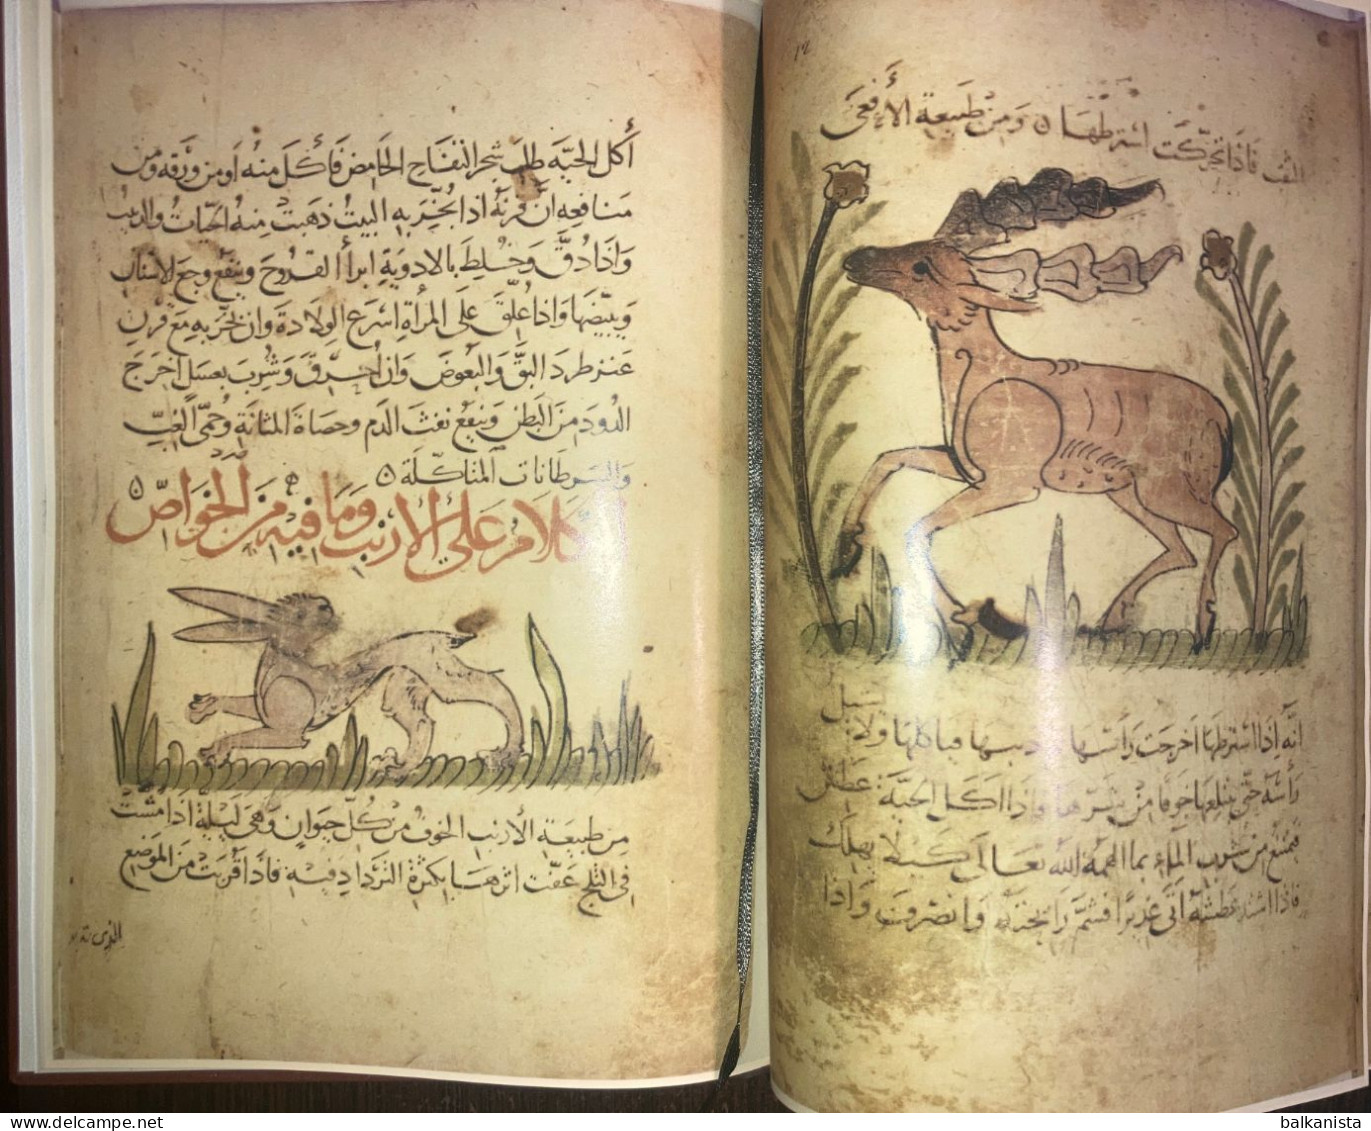 ١٢
النف فاذا تحركت استرطها ٥ ومن طبيعة الأفعى
انه اذا استرطها اخرجت رأسها فيأكلها ولا يبل
رأسه حتى يبلعها خوفا من شرها واذا اكل الحية عطش
فيمتنع من شرب الماء بما الهمه الله تعالى كيلا يهلك
فاذا اشتد عطشه اتى غديرا فشم رائحته وانصرف واذا
أكل الحية طلب شجر التفاح الحامض فأكل منه أو من ورقه ومن
منافعه أن قرنه اذا بخر به البيت ذهبت منه الحيات والدبيب
واذا دق وخلط بالادوية ابرأ القروح وينفع وجع الاسنان
ويبيضها واذا علق على المرأة اسرع الولادة وان بخر به مع قرن
عنز طرد البق والبعوض وان احرق وشرب بعسل اخرج
الدود من البطن وينفع نفث الدم وحصاة المثانة وحمى الغب
والسرطانات المتأكلة ٥
كلام على الأرنب وما فيه من الخواص ٥
من طبيعة الأرنب الخوف من كل حيوان وهي ليلية اذا مشت
في الثلج عفت اثرها بكثرة التردد فيه فاذا قربت من الموضع
الذي
balkanista